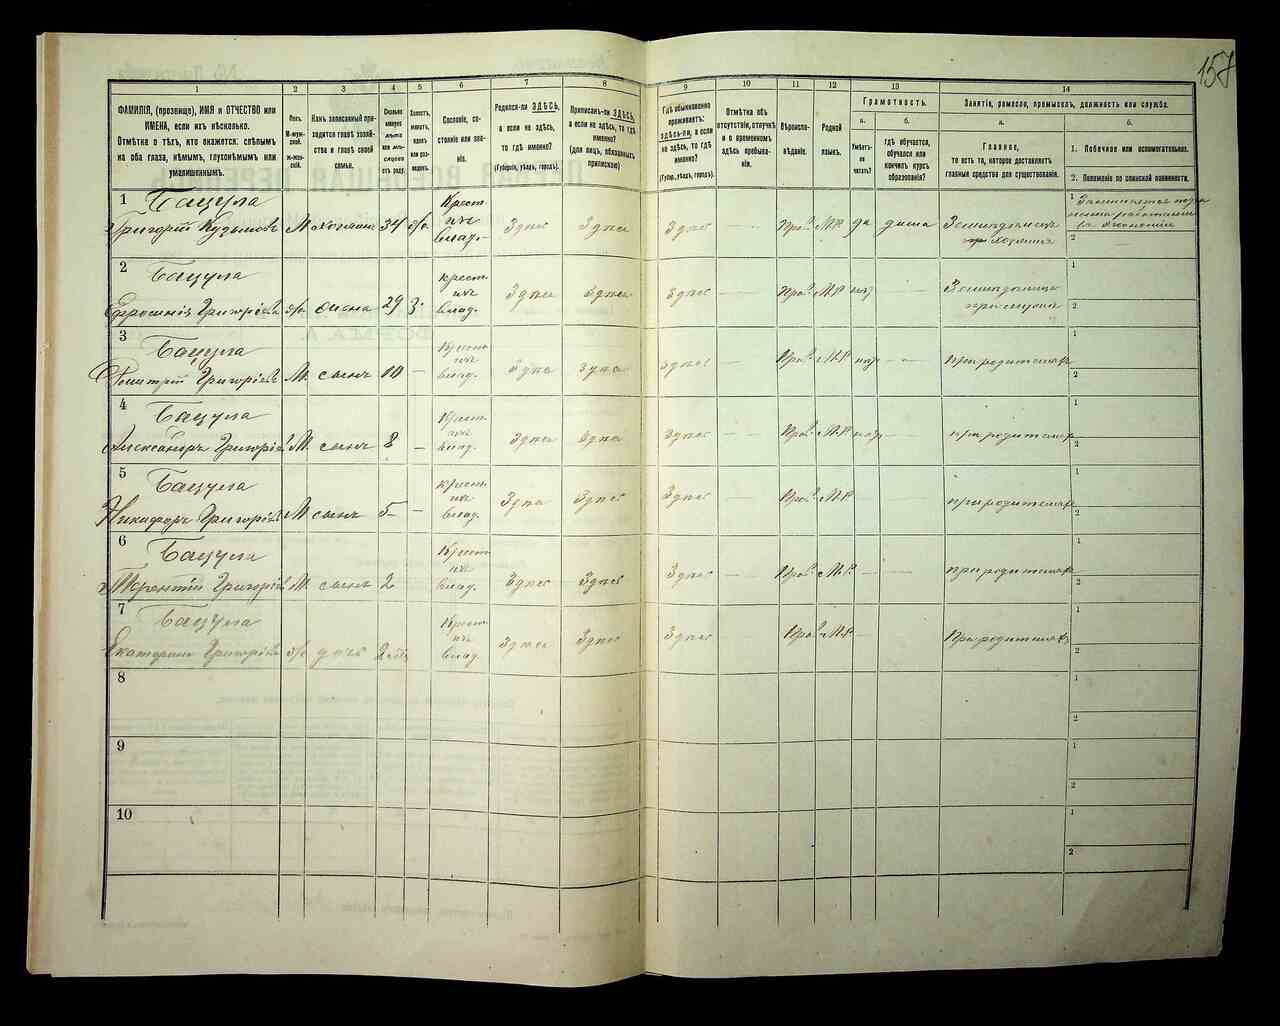 157
1 2 3 4 5 6 7 8 9 10 11 12 13 14
ФАМИЛІЯ, (прозвище), ИМЯ и ОТЧЕСТВО или
ИМЕНА, если ихъ нѣсколько.
Отмѣтка о тѣхъ, кто окажется: слѣпымъ
на оба глаза, нѣмымъ, глухонѣмымъ или
умалишеннымъ.
Полъ.
М-муж-
ской.
ж-жен-
скій.
Какъ записанный при-
ходится главѣ хозяй-
ства и главѣ своей
семьи.
Сколько
минуло
лѣтъ
или мѣ-
сяцевъ
отъ роду.
Холостъ,
женатъ,
вдовъ
или раз-
веденъ.
Сословіе, со-
стояніе или зва-
ніе.
Родился-ли ЗДѢСЬ,
а если не здѣсь,
то гдѣ именно?
(Губернія, уѣздъ, городъ).
Приписанъ-ли ЗДѢСЬ,
а если не здѣсь, то гдѣ
именно?
(для лицъ, обязанныхъ
припискою)
Гдѣ обыкновенно
проживаетъ:
здѣсь-ли, а если
не здѣсь, то гдѣ
именно?
(Губер., уѣздъ, городъ).
Отмѣтка объ
отсутствіи, отлучкѣ
и о временномъ
здѣсь пребыва-
ніи.
Вѣроиспо-
вѣданіе.
Родной
языкъ.
Грамотность.
а.
Умѣетъ-
ли
читать?
б.
гдѣ обучается,
обучался или
кончилъ курсъ
образованія?
Занятіе, ремесло, промыселъ, должность или служба.
а.
Главное,
то есть то, которое доставляетъ
главныя средства для существованія.
б.
1. Побочное или вспомогательное.
2. Положеніе по воинской повинности.
1 Бацула
Григорій Кузьмовъ М хозяинъ 34 Крест. Здѣсь Здѣсь Здѣсь — Пра. М.Р. да дома Земледѣлецъ хозяинъ
1 Занимается
работами
въ экономіи
2
2 Бацула
Ефросинія Григоріева жена 29 З. Крест. влад. Здѣсь Здѣсь Здѣсь — Пра. М.Р. —
1
2
3 Бацула
Дмитрій Григоріевъ М. сынъ 10 — влад. Здѣсь Здѣсь Здѣсь — Пра. М.Р. — при родителяхъ
1
2
4 Бацула
Александръ Григоріевъ М. сынъ 8 — Крест. влад. Здѣсь Здѣсь Здѣсь — Пра. М.Р. — при родителяхъ
1
2
5 Бацула
Никифоръ Григоріевъ М сынъ 5 — Крест. влад. Здѣсь Здѣсь Здѣсь — Пра. М.Р. при родителяхъ
1
2
6 Бацула
Терентій Григоріевъ М. сынъ 2 Крест. влад. Здѣсь Здѣсь Здѣсь — Пра. М.Р. — — при родителяхъ
1
2
7 Бацула
Екатерина Григоріева дочь Крест. влад. Здѣсь Здѣсь Здѣсь Пра. М.Р. — При родителяхъ
1
2
8
1
2
9
1
2
10
1
2